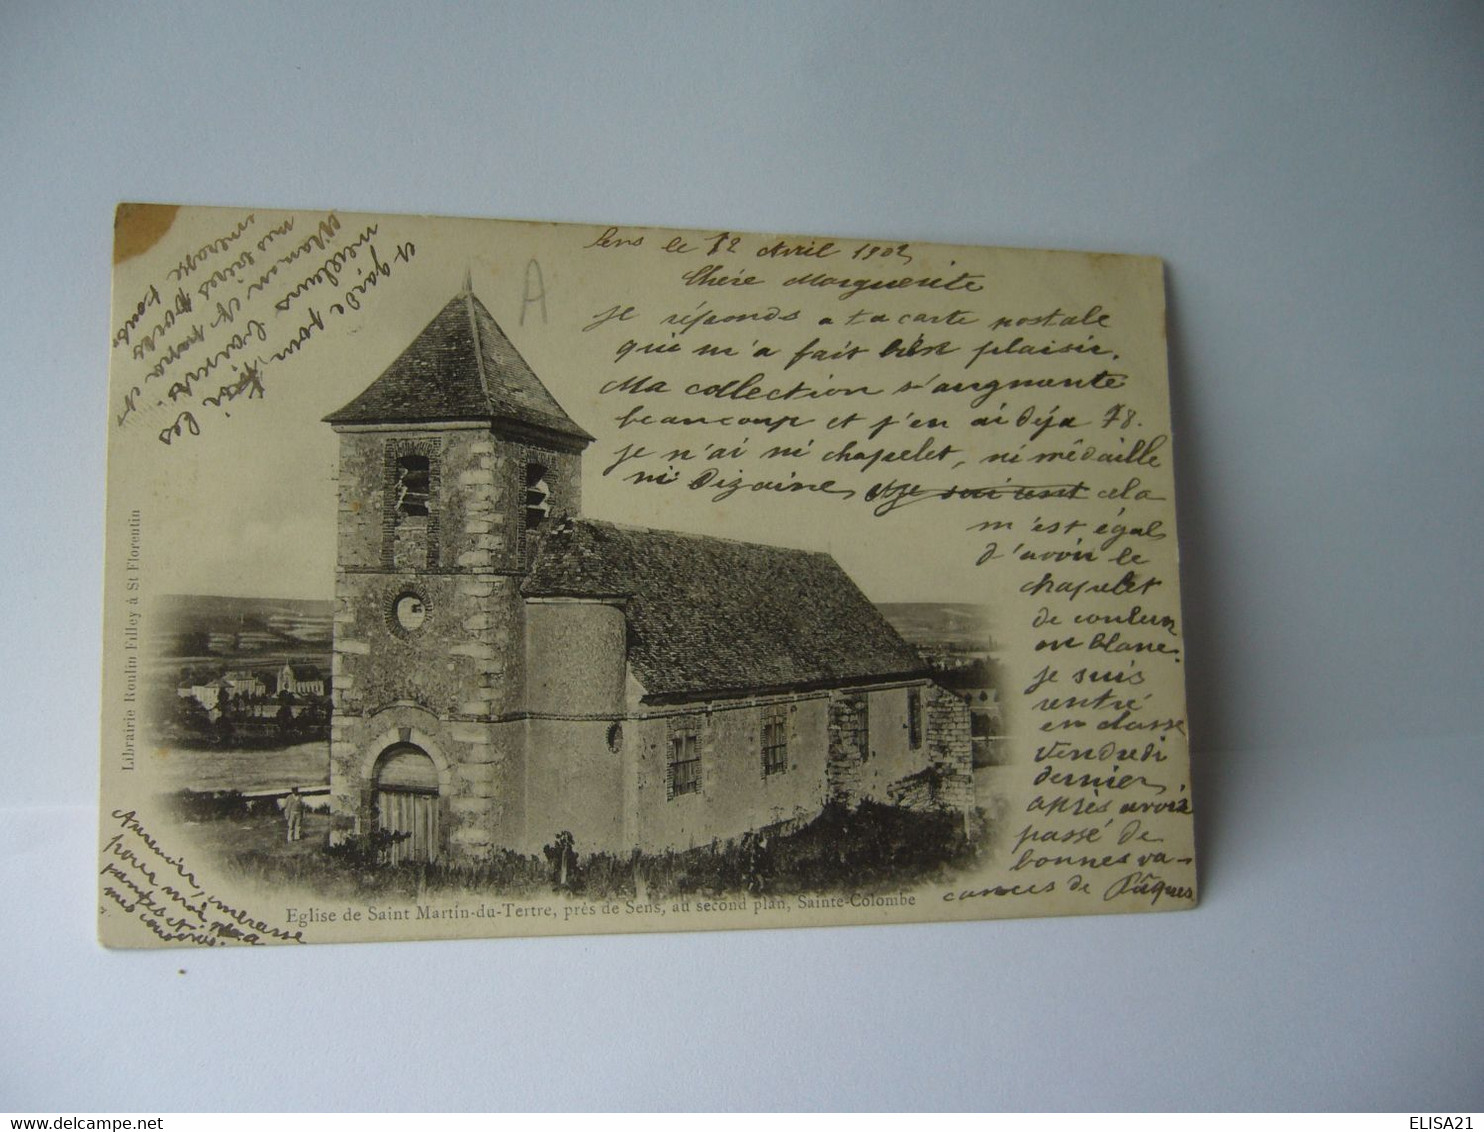 Sens le 12 Avril 1902
Chère Marguerite
je réponds a ta carte postale
qui m'a fait bien plaisir.
Ma collection s'augmente
beaucoup et j'en ai déja 78.
je n'ai ni chapelet, ni médaille
ni dizaine, cela
m'est égal
d'avoir le
chapelet
de couleur
ou blanc.
je suis
rentré
en classe
vendredi
dernier
après avoir
passé de
bonnes va-
cances de Pâques
Aurevoir, embrasse
pour moi, ta
et
mes cousines.
embrasse tout
mes tantes
Maman et papa et
meilleurs baisers.
et garde pour toi les
A
Librairie Roulin Filley à St Florentin
Eglise de Saint Martin-du-Tertre, près de Sens, au second plan, Sainte-Colombe
ELISA21